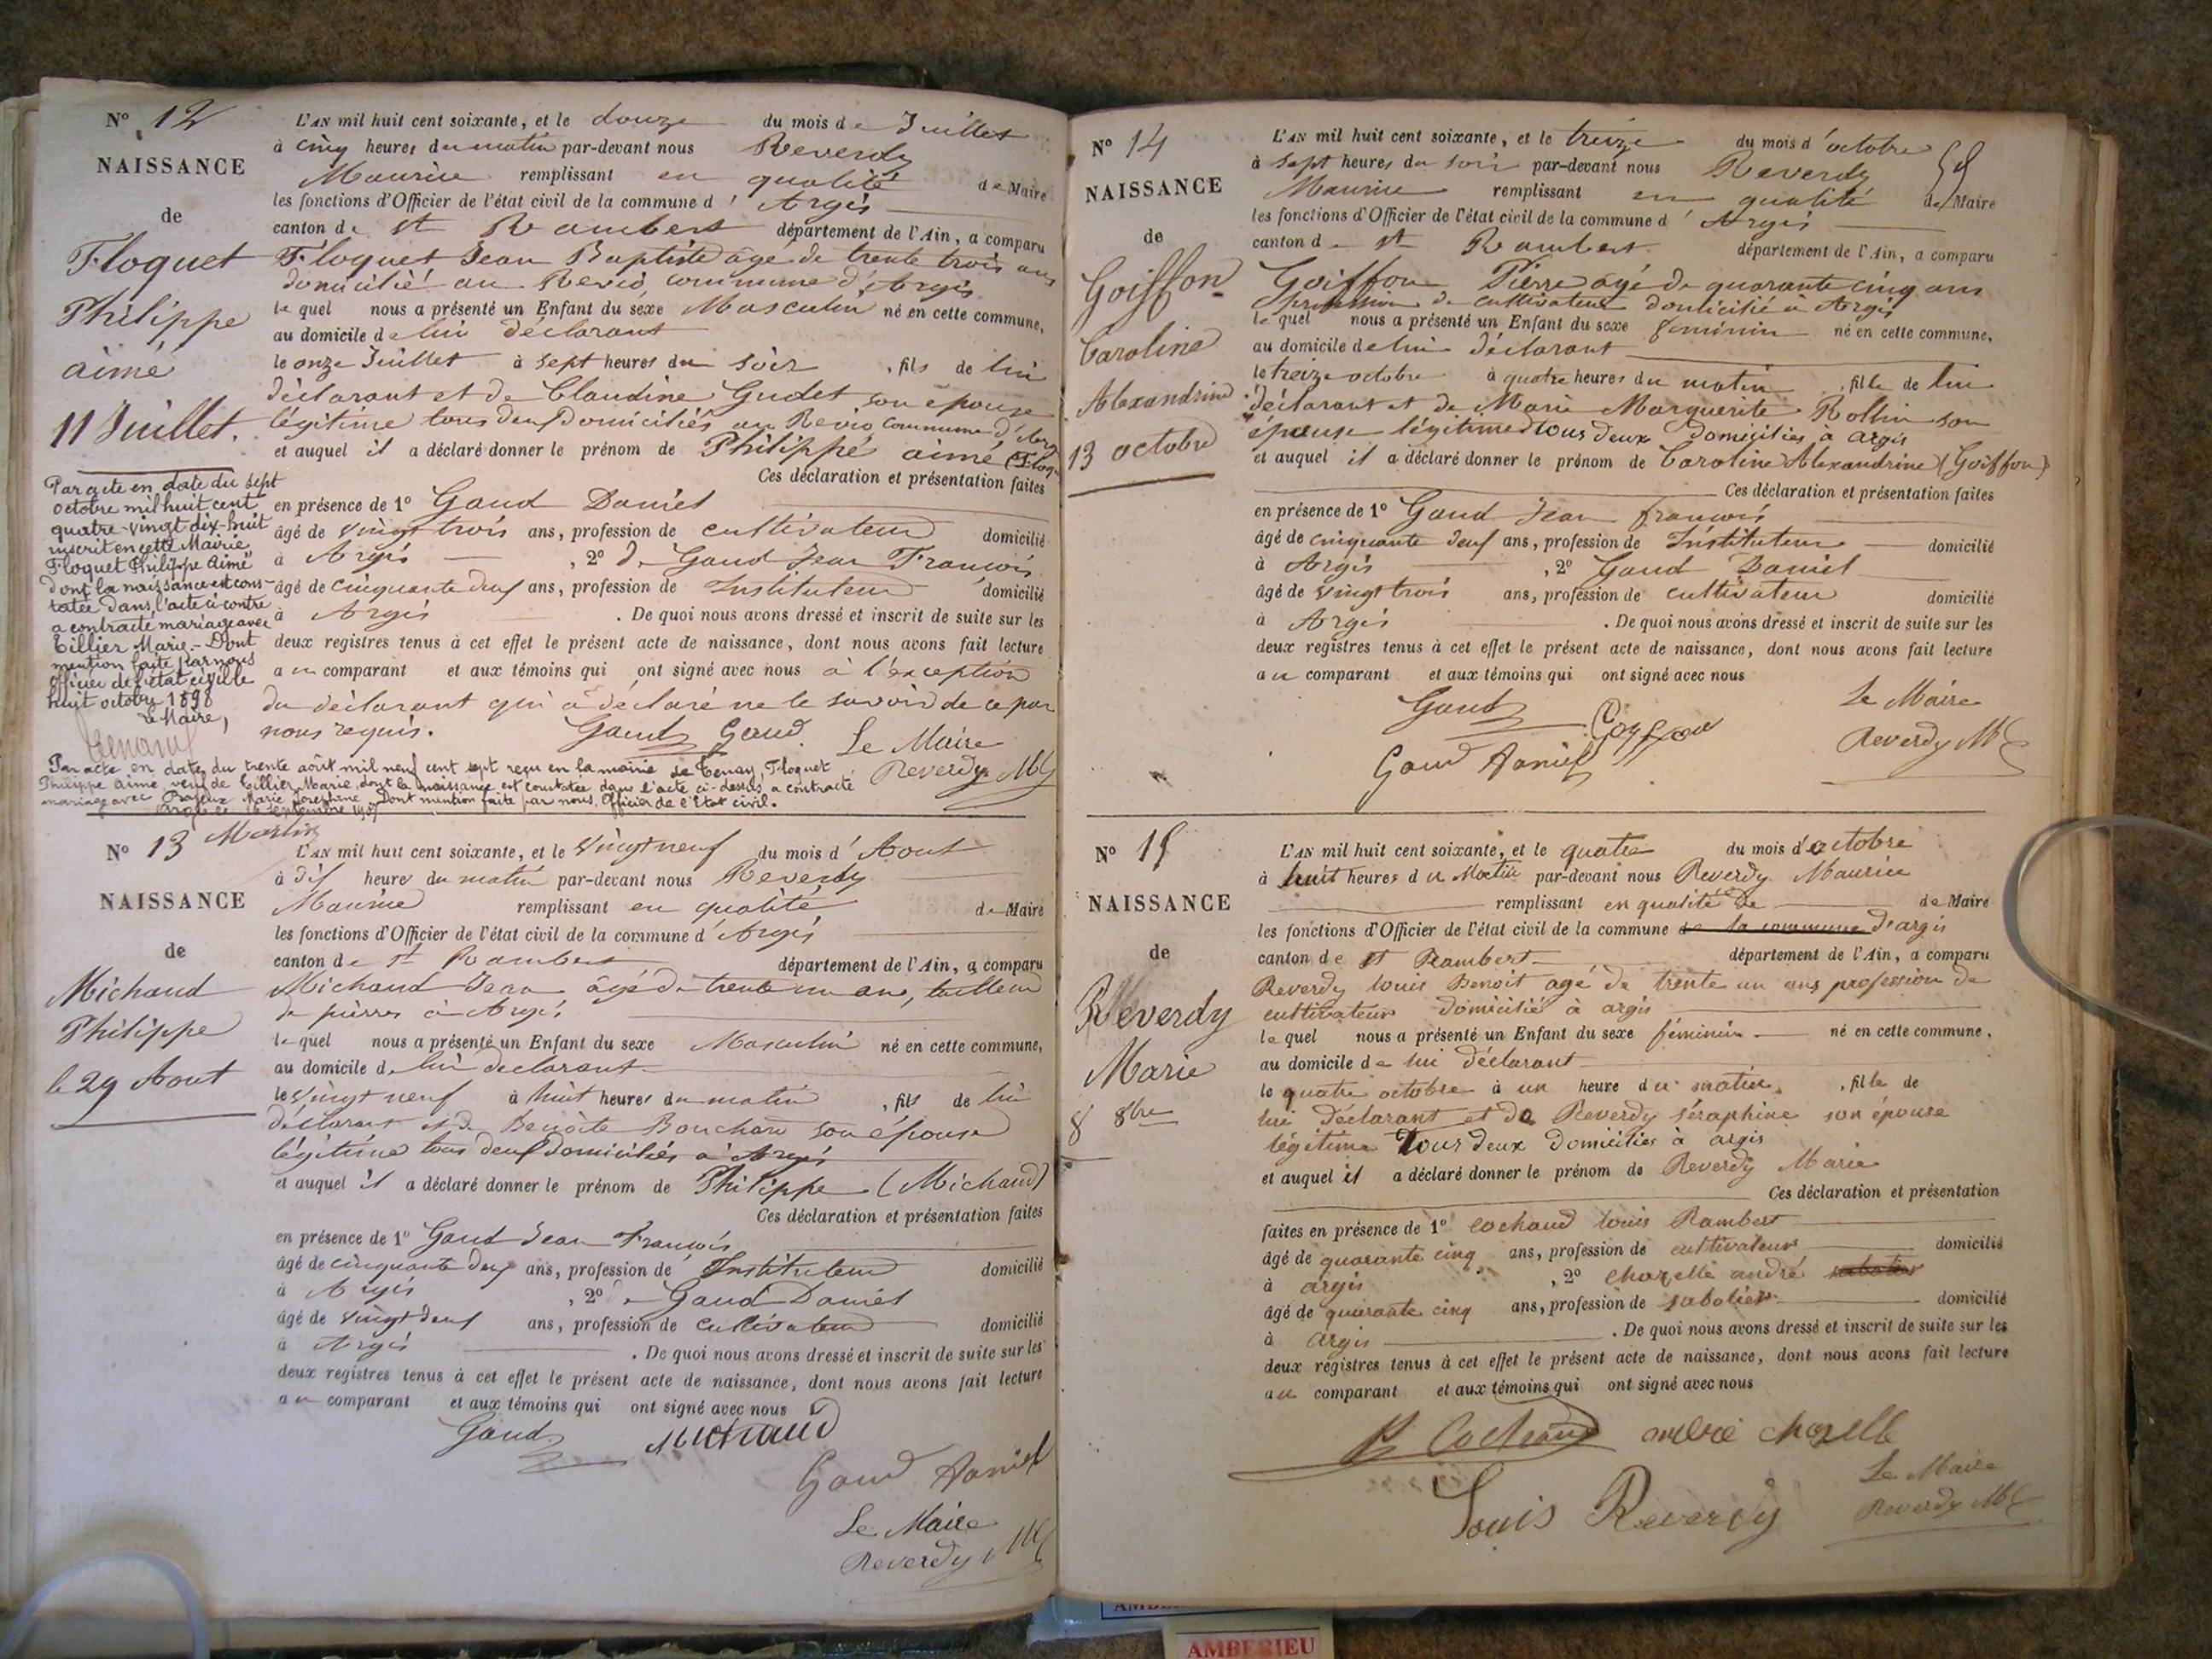 N° 12
NAISSANCE
de
Floquet
Philippe
aimé
11 Juillet.
Par acte en date du sept
octobre mil huit cent
quatre-vingt dix-huit
inscrit en cette Mairie
Floquet Philippe Aimé
dont la naissance est cons-
tatée dans l'acte ci-contre
a contracté mariage avec
Tillier Marie.- Dont
mention faite par nous
officier de l'état civil le
huit octobre 1898
Le Maire,
L'AN mil huit cent soixante, et le douze du mois de Juillet
à cinq heures du matin par-devant nous Reverdy
Maurice remplissant en qualité de Maire
les fonctions d'Officier de l'état civil de la commune d'Argis
canton de St Rambert département de l'Ain, a comparu
Floquet Jean Baptiste âgé de trente trois ans
domicilié au Revio, commune d'Argis
lequel nous a présenté un Enfant du sexe Masculin né en cette commune,
au domicile de lui déclarant
le onze Juillet à sept heures du soir, fils de lui
déclarant et de Claudine Gudet son épouse
légitime tous deux Domiciliés au Revio commune d'Argis
et auquel il a déclaré donner le prénom de Philippe aimé (Floquet
Ces déclaration et présentation faites
en présence de 1° Gaud Daniel
âgé de vingt trois ans, profession de cultivateur domicilié
à Argis, 2° de Gaud Jean François
âgé de cinquante deux ans, profession de Instituteur domicilié
à Argis. De quoi nous avons dressé et inscrit de suite sur les
deux registres tenus à cet effet le présent acte de naissance, dont nous avons fait lecture
au comparant et aux témoins qui ont signé avec nous à l'exception
du déclarant qui a déclaré ne le savoir de ce par
nous requis.
Gaud Gaud Le Maire
Reverdy M
Par acte en date du trente août mil neuf cent sept reçu en la mairie de Tenay, Floquet
Philippe Aimé, veuf de Tillier Marie, dont la naissance est constatée dans l'acte ci-dessus a contracté
mariage avec Marie Dont mention faite par nous, Officier de l'Etat civil.
Argis le septembre 1907
N° 13
NAISSANCE
de
Michaud
Philippe
le 29 Aout
L'AN mil huit cent soixante, et le vingt neuf du mois d'Aout
à dix heures du matin par-devant nous Reverdy
Maurice remplissant en qualité de Maire
les fonctions d'Officier de l'état civil de la commune d'Argis
canton de St Rambert département de l'Ain, a comparu
Michaud Jean âgé de trente un ans, tailleur
de pierres à Argis
lequel nous a présenté un Enfant du sexe Masculin né en cette commune,
au domicile de lui déclarant
le vingt neuf à huit heures du matin, fils de lui
déclarant et de Benoite Bouchard son épouse
légitime tous deux Domiciliés à Argis
et auquel il a déclaré donner le prénom de Philippe (Michaud)
Ces déclaration et présentation faites
en présence de 1° Gaud Jean François
âgé de cinquante deux ans, profession de Instituteur domicilié
à Argis, 2° de Gaud Daniel
âgé de vingt deux ans, profession de cultivateur domicilié
à Argis. De quoi nous avons dressé et inscrit de suite sur les
deux registres tenus à cet effet le présent acte de naissance, dont nous avons fait lecture
au comparant et aux témoins qui ont signé avec nous
Gaud Michaud
Gaud Daniel
Le Maire
Reverdy M
N° 14
NAISSANCE
de
Goiffon
Caroline
Alexandrine
13 octobre
L'AN mil huit cent soixante, et le treize du mois d'octobre
59
à sept heures du soir par-devant nous Reverdy
Maurice remplissant en qualité de Maire
les fonctions d'Officier de l'état civil de la commune d'Argis
canton de St Rambert département de l'Ain, a comparu
Goiffon Pierre âgé de quarante cinq ans
profession de cultivateur domicilié à Argis
lequel nous a présenté un Enfant du sexe féminin né en cette commune,
au domicile de lui déclarant
le treize octobre à quatre heures du matin, fille de lui
déclarant et de Marie Marguerite Rollin son
épouse légitime tous deux domiciliés à argis
et auquel il a déclaré donner le prénom de Caroline Alexandrine (Goiffon)
Ces déclaration et présentation faites
en présence de 1° Gaud Jean françois
âgé de cinquante deux ans, profession de Instituteur domicilié
à Argis, 2° Gaud Daniel
âgé de vingt trois ans, profession de cultivateur domicilié
à Argis. De quoi nous avons dressé et inscrit de suite sur les
deux registres tenus à cet effet le présent acte de naissance, dont nous avons fait lecture
au comparant et aux témoins qui ont signé avec nous
Gaud Goyffon Le Maire
Gaud Daniel Reverdy M
N° 15
NAISSANCE
de
Reverdy
Marie
8 8bre
L'AN mil huit cent soixante, et le quatre du mois d'octobre
à huit heures du Matin par-devant nous Reverdy Maurice
remplissant en qualité de de Maire
les fonctions d'Officier de l'état civil de la commune de la commune d'argis
canton de St Rambert département de l'Ain, a comparu
Reverdy louis Benoit agé de trente un ans profession de
cultivateur domicilié à argis
lequel nous a présenté un Enfant du sexe féminin né en cette commune,
au domicile de lui déclarant
le quatre octobre à un heure du matin, fille de
lui déclarant et de Reverdy séraphine son épouse
légitime Tous deux domiciliés à argis
et auquel il a déclaré donner le prénom de Reverdy Marie
Ces déclaration et présentation
faites en présence de 1° cochaud louis Rambert
âgé de quarante cinq ans, profession de cultivateur domicilié
à argis, 2° chazelle andré sabotier
âgé de quarante cinq ans, profession de sabotier domicilié
à argis. De quoi nous avons dressé et inscrit de suite sur les
deux registres tenus à cet effet le présent acte de naissance, dont nous avons fait lecture
au comparant et aux témoins qui ont signé avec nous
Cochaud andré chazelle
Le Maire
Louis Reverdy Reverdy M
AMBERIEU